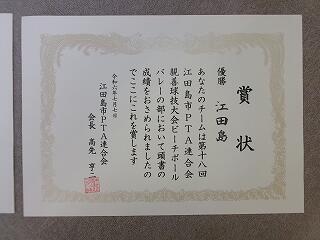 賞状
優勝
江田島
あなたのチームは第十八回
江田島市PTA連合会
親善球技大会ビーチボール
バレーの部において頭書の
成績をおさめられましたの
でここにこれを賞します
令和六年七月七日
江田島市PTA連合会
会長 高先 亨二